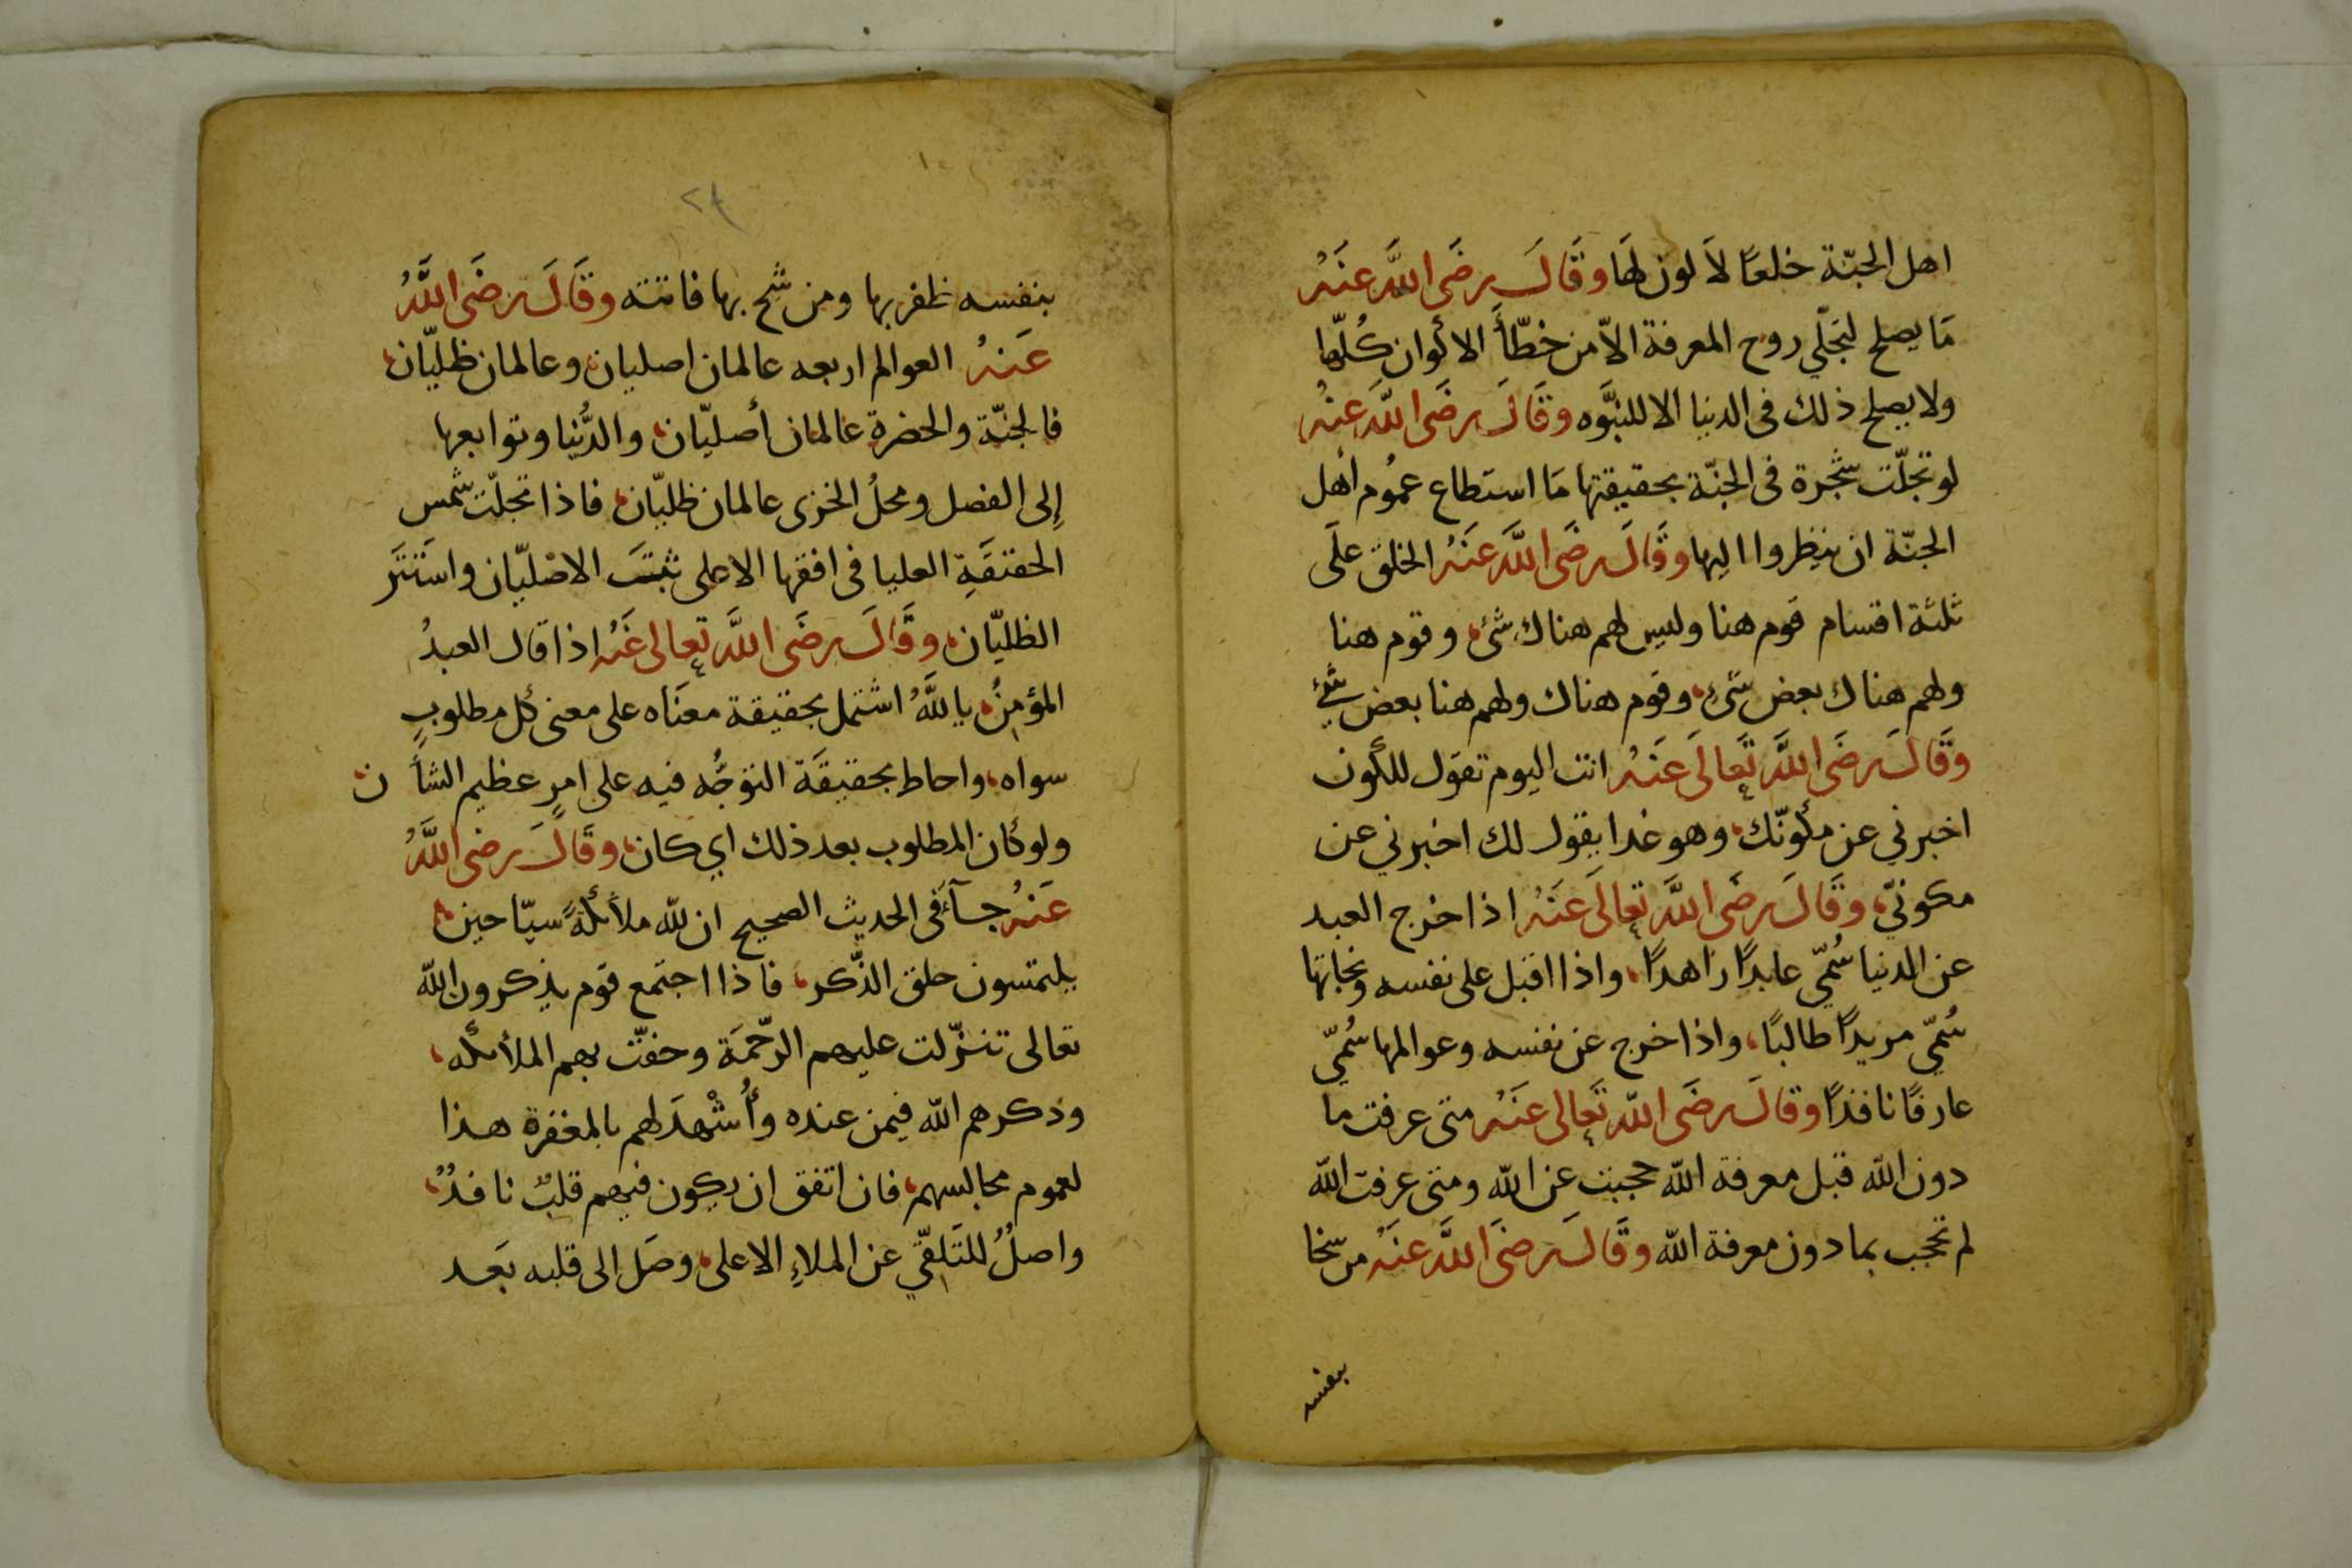 اهل الجنّة خلعًا لاَ لون لهَا وقَالَ رضَى اللَّه عنَهُ
مَا يصلح لتجَلّي روح المعرفة الاّ من خطّأ الالوان كُلّها
ولا يصلح ذلك فى الدنيا الا للنبُوَّه وقَالَ رضَى اللَّه عنهُ
لو تجلّت شجرة فى الجنّة بحقيقتها مَا استَطاع عمُوم أهل
الجنّة ان ينظروا اليها وقَالَ رضَى اللَّه عنَهُ الخلق علَى
ثلثة اقسام قوم هنا وليس لهم هناك شئ، وقوم هنا
ولهم هناك بعض شئ، وقوم هناك ولهم هنا بعض شئ
وقَالَ رضَى اللَّه تَعالَى عَنَهُ انت اليوم تقوَل للكون
اخبرني عن مكونّك، وهو غدا يقول لك اخبرني عن
مكونيّ، وقَالَ رضَى اللَّه تعالَى عَنَهُ اذا خرج العبد
عن الدنيا سُمّي عابدًا زاهدًا، واذا اقبل على نفسه ونجاتها
سُمّي مريدًا طالبًا، واذا خرج عن نفسه وعوالمها سُمّي
عارفًا نافذًا وقالَ رضَى اللّه تَعالى عنَهُ متى عرفت ما
دون الله قبل معرفة الله حجبت عن الله ومتى عرفت الله
لم تحجب بما دون معرفة الله وقَالَ رضَى اللَّه عنَهُ من سخا
بنفسه
٢٤
بنفسه ظفر بها ومن شح بها فاتته وقَالَ رضَى اللَّهُ
عَنهُ العوالم اربعه عالمان اصليان، وعالمان ظليّان،
فالجنّة والحضرة عالمان أصليّان، والدُّنيا وتوابعها
إلى الفصل ومحلُ الخزى عالمان ظليّان، فاذا تجلّت شمس
الحقتقَةِ العليا فى افقها الاعلى ثبتَت الاصْليّان واسَتتَر
الظليّان، وقَالَ رضَى اللَّه تعالى عَنُه اذا قال العبدُ
المؤمنُ، يا اللَّهُ اشتمل بحقيقة معنَاه على معنى كُل مطلوبٍ
سواه، واحاط بحقيقَة التوَجُّه فيه على امرٍ عظيم الشأن،
ولو كان المطلوب بعد ذلك اي كان، وقَالَ رضى اللَّهُ
عَنهُ جآء فى الحديث الصحيح ان لله ملأئكةً سيّاحين،
يلتمسون حلق الذّكر، فاذا اجتَمع قوَم يذكرون الله
تعالى تنزّلت عليهم الرّحمَة وحفتّ بهم الملأئكه،
وذكرهم الله فيمن عنده وأُشْهدَ لهم بالمغفرة هذا
لعموم مجالسهم، فان اتفق ان يكون فيهم قلبٌ نافذٌ،
واصلٌ للتَلقّي عن الملاءِ الاعلى، وصَل الى قلبه بَعد